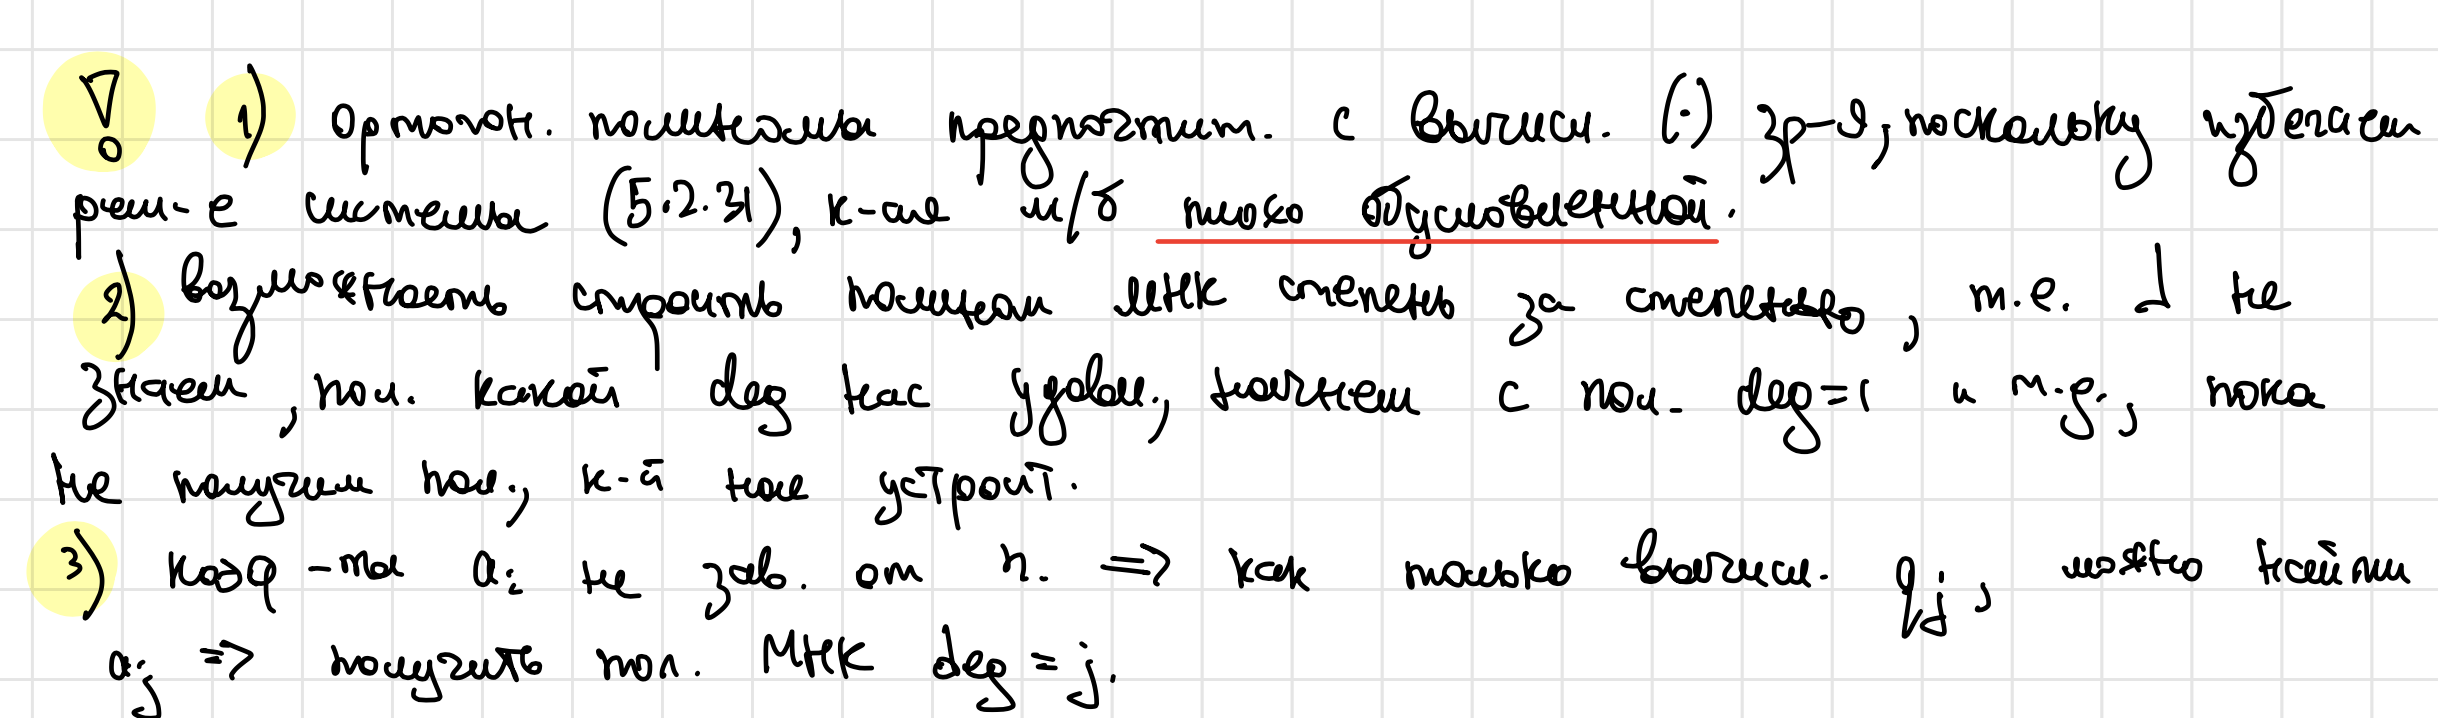 ! 1) ортогон. полиномы предпочтит. с вычисл. (·) зр-я, поскольку избегаем
реш-е системы (5.2.31), к-ая м/б плохо обусловленной.
2) возможность строить полином МНК степень за степенью, т.е. ⅃ не
знаем, пол. какой deg нас удовл., начнем с пол. deg=1 и т.д., пока
не получим пол., к-й нас устроит.
3) коэф-ты aᵢ не зав. от n. => как только вычисл. qⱼ, можно найти
aⱼ => получить пол. МНК deg = j.